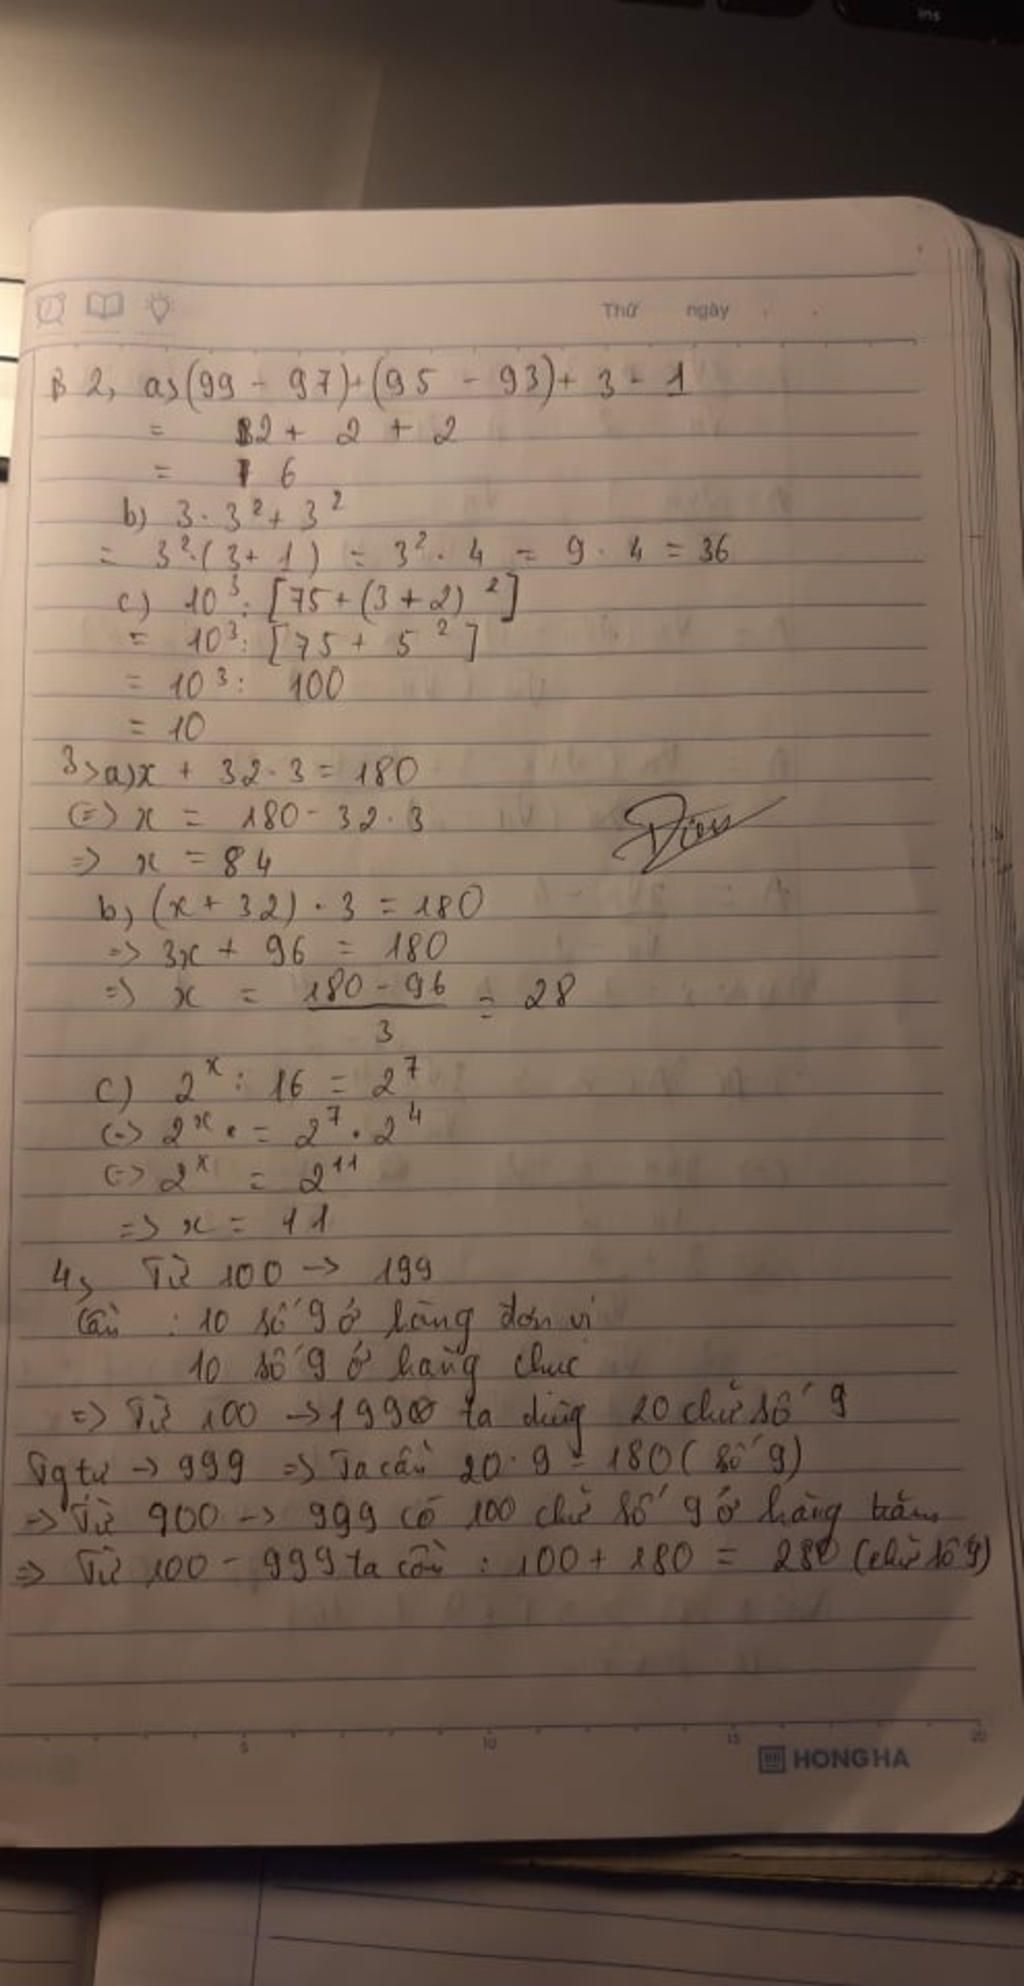 ins
Thứ ngày
B 2, a,(99 - 97)+(95 - 93)+ 3 - 1
= 2 + 2 + 2
= 6
b) 3 . 3² + 3²
= 3².(3+ 1) = 3² . 4 = 9 . 4 = 36
c) 10³ : [75+(3+2)²]
= 10³: [75+ 5²]
= 10³: 100
= 10
3>a)x + 32.3 = 180
(=> x = 180 - 32.3
=> x = 84
b, (x+32) . 3 = 180
=> 3x + 96 = 180
=> x = (180 - 96)/3 = 28
c) 2ˣ : 16 = 2⁷
(=> 2ˣ . = 2⁷ . 2⁴
(=> 2ˣ = 2¹¹
=> x = 11
4, Từ 100 -> 199
Cần : 10 số 9 ở hàng đơn vị
10 số 9 ở hàng chục
=> Từ 100 -> 199 ta dùng 20 chữ số 9
Tg tự -> 999 => Ta cần 20.9 = 180 (số 9)
=> Từ 900 -> 999 có 100 chữ số 9 ở hàng trăm
=> Từ 100 - 999 ta cần : 100 + 180 = 280 (chữ số 9)
5 10 15 20
HONG HA